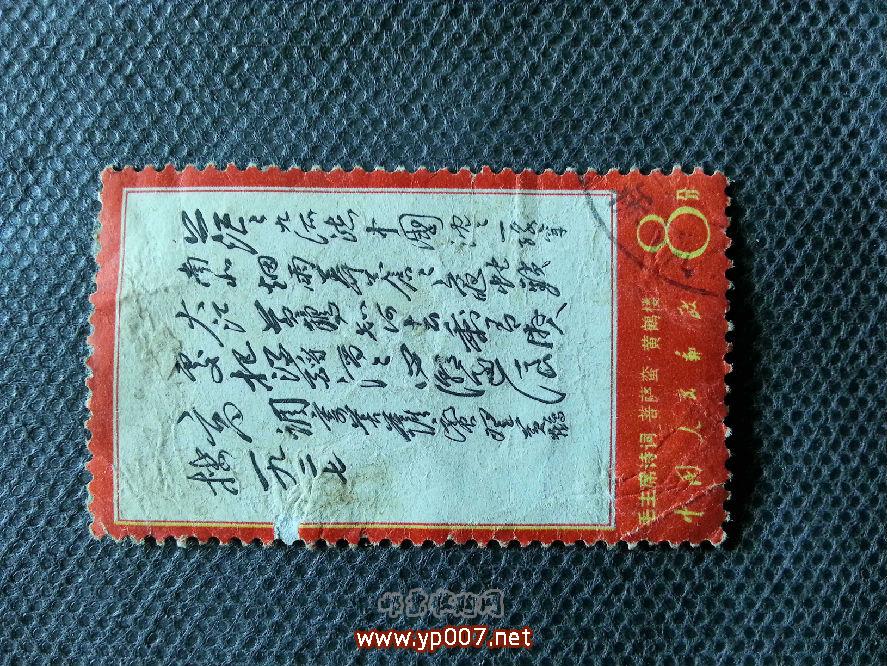 茫〻九派流中國沉〻一线穿
南北烟雨莽苍〻龟蛇锁
大江黄鹤知何去剩有游人
處把酒酹滔〻心潮逐浪
高 调寄菩萨蛮 登黄鹤
楼 一九二七
8分
毛主席诗词 菩萨蛮 黄鹤楼
中国人民邮政
www.yp007.net